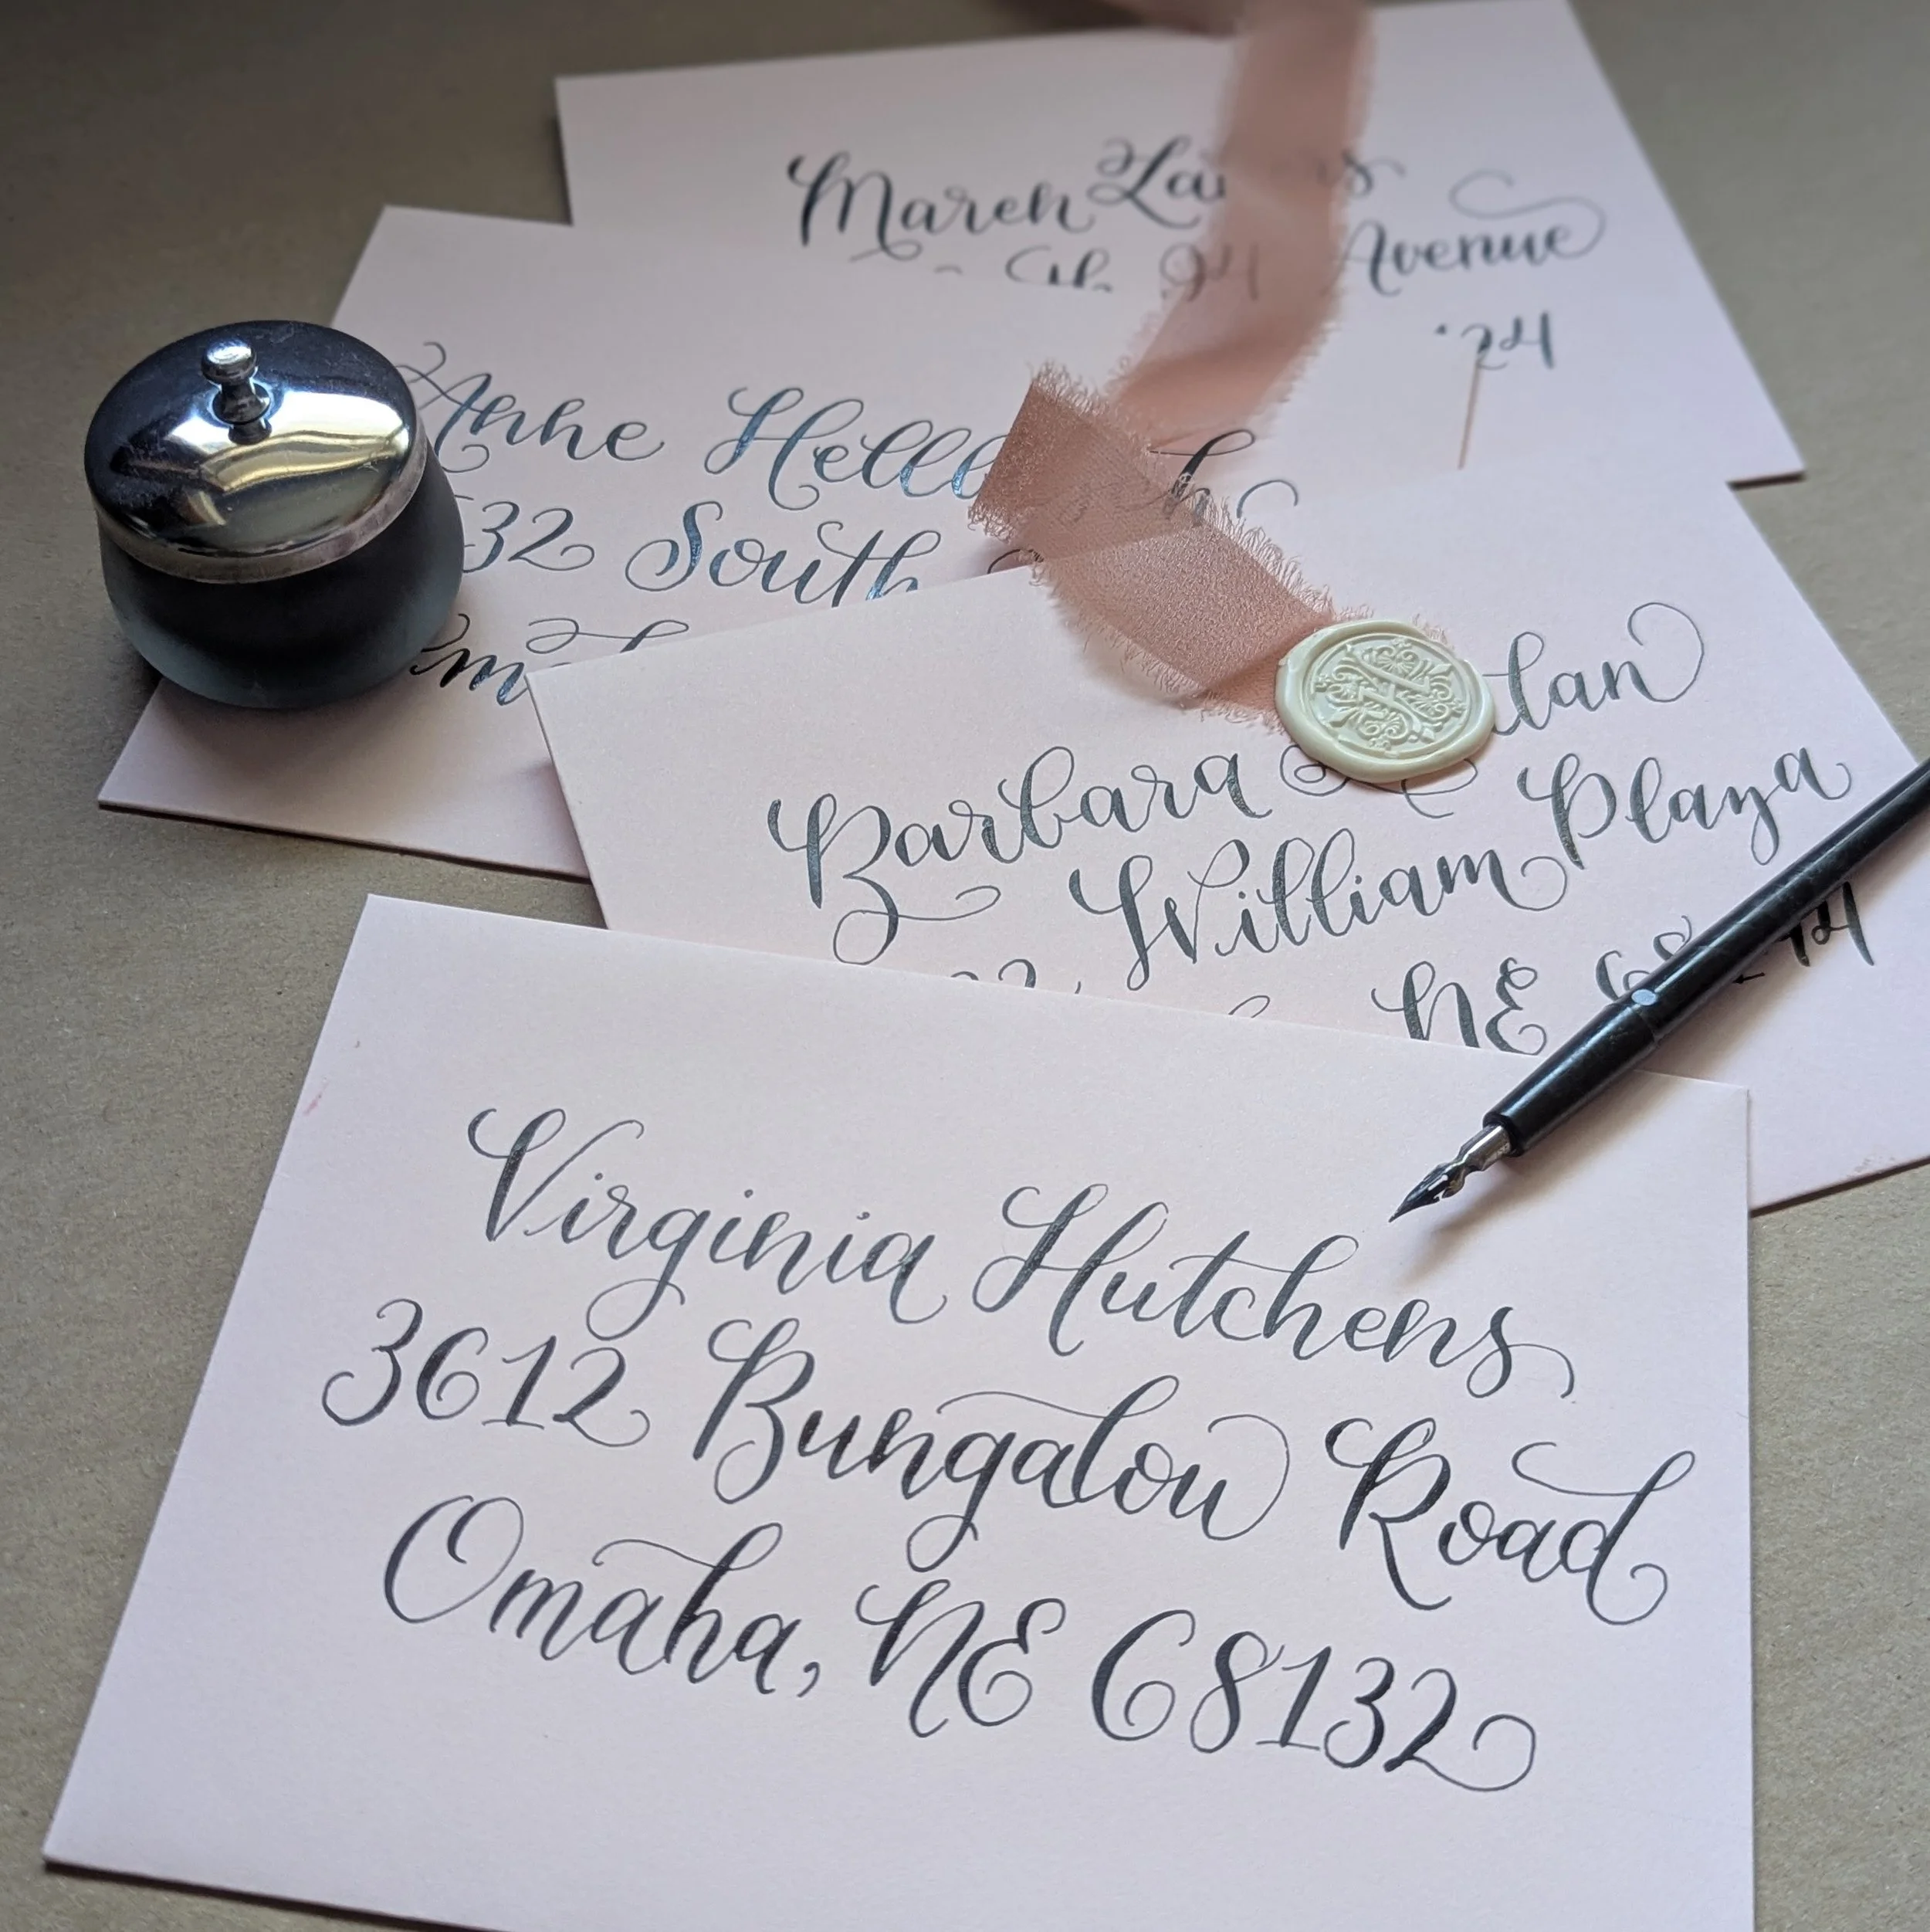 March
Avenue
24
Anne
32 South
Barbara
William Plaza
NE
Virginia Hutchens
3612 Bungalow Road
Omaha, NE 68132